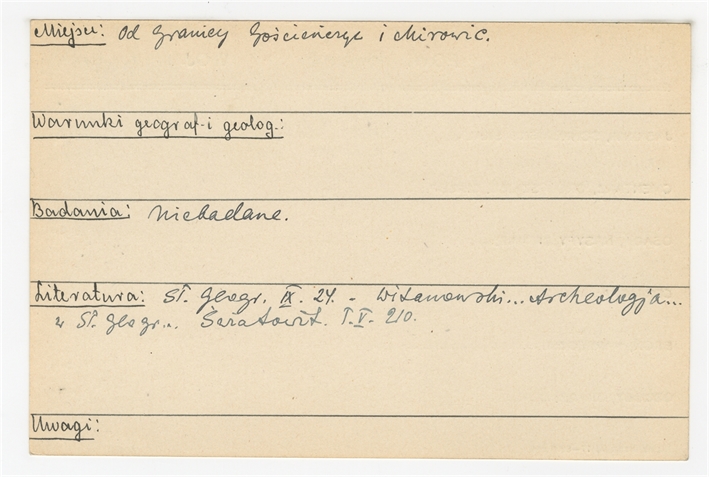 Miejsce: Od granicy Gościeńczyc i Mirowic.
Warunki geograf. i geolog.:
Badania: Niebadane.
Literatura: Sł. geogr. IX. 24. - Witanowski... Archeologja...
w Sł. geogr... Światowit. T. V. 210.
Uwagi: